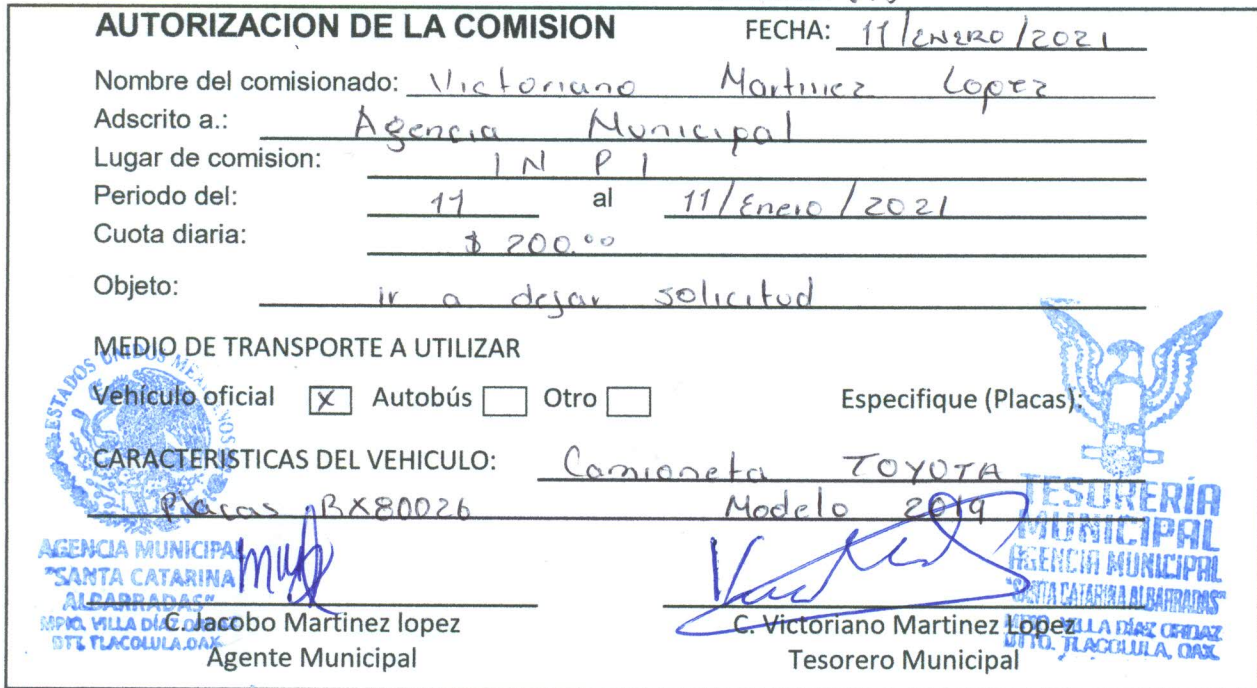 AUTORIZACION DE LA COMISION FECHA: 11/ENERO/2021
Nombre del comisionado: Victoriano Martinez Lopez
Adscrito a.: Agencia Municipal
Lugar de comision: INPI
Periodo del: 11 al 11/Enero/2021
Cuota diaria: $ 200.00
Objeto: ir a dejar solicitud
MEDIO DE TRANSPORTE A UTILIZAR
Vehículo oficial X Autobús Otro Especifique (Placas):
CARACTERISTICAS DEL VEHICULO: Camioneta TOYOTA
Placas RX80026 Modelo 2019
ESTADOS UNIDOS MEXICANOS
AGENCIA MUNICIPAL
"SANTA CATARINA
ALBARRADAS"
MPIO. VILLA DÍAZ ORDAZ
DTT. TLACOLULA, OAX.
TESORERÍA
MUNICIPAL
AGENCIA MUNICIPAL
"SANTA CATARINA ALBARRADAS"
MPIO. VILLA DÍAZ ORDAZ
DTTO. TLACOLULA, OAX.
C. Jacobo Martinez lopez
Agente Municipal
C. Victoriano Martinez Lopez
Tesorero Municipal